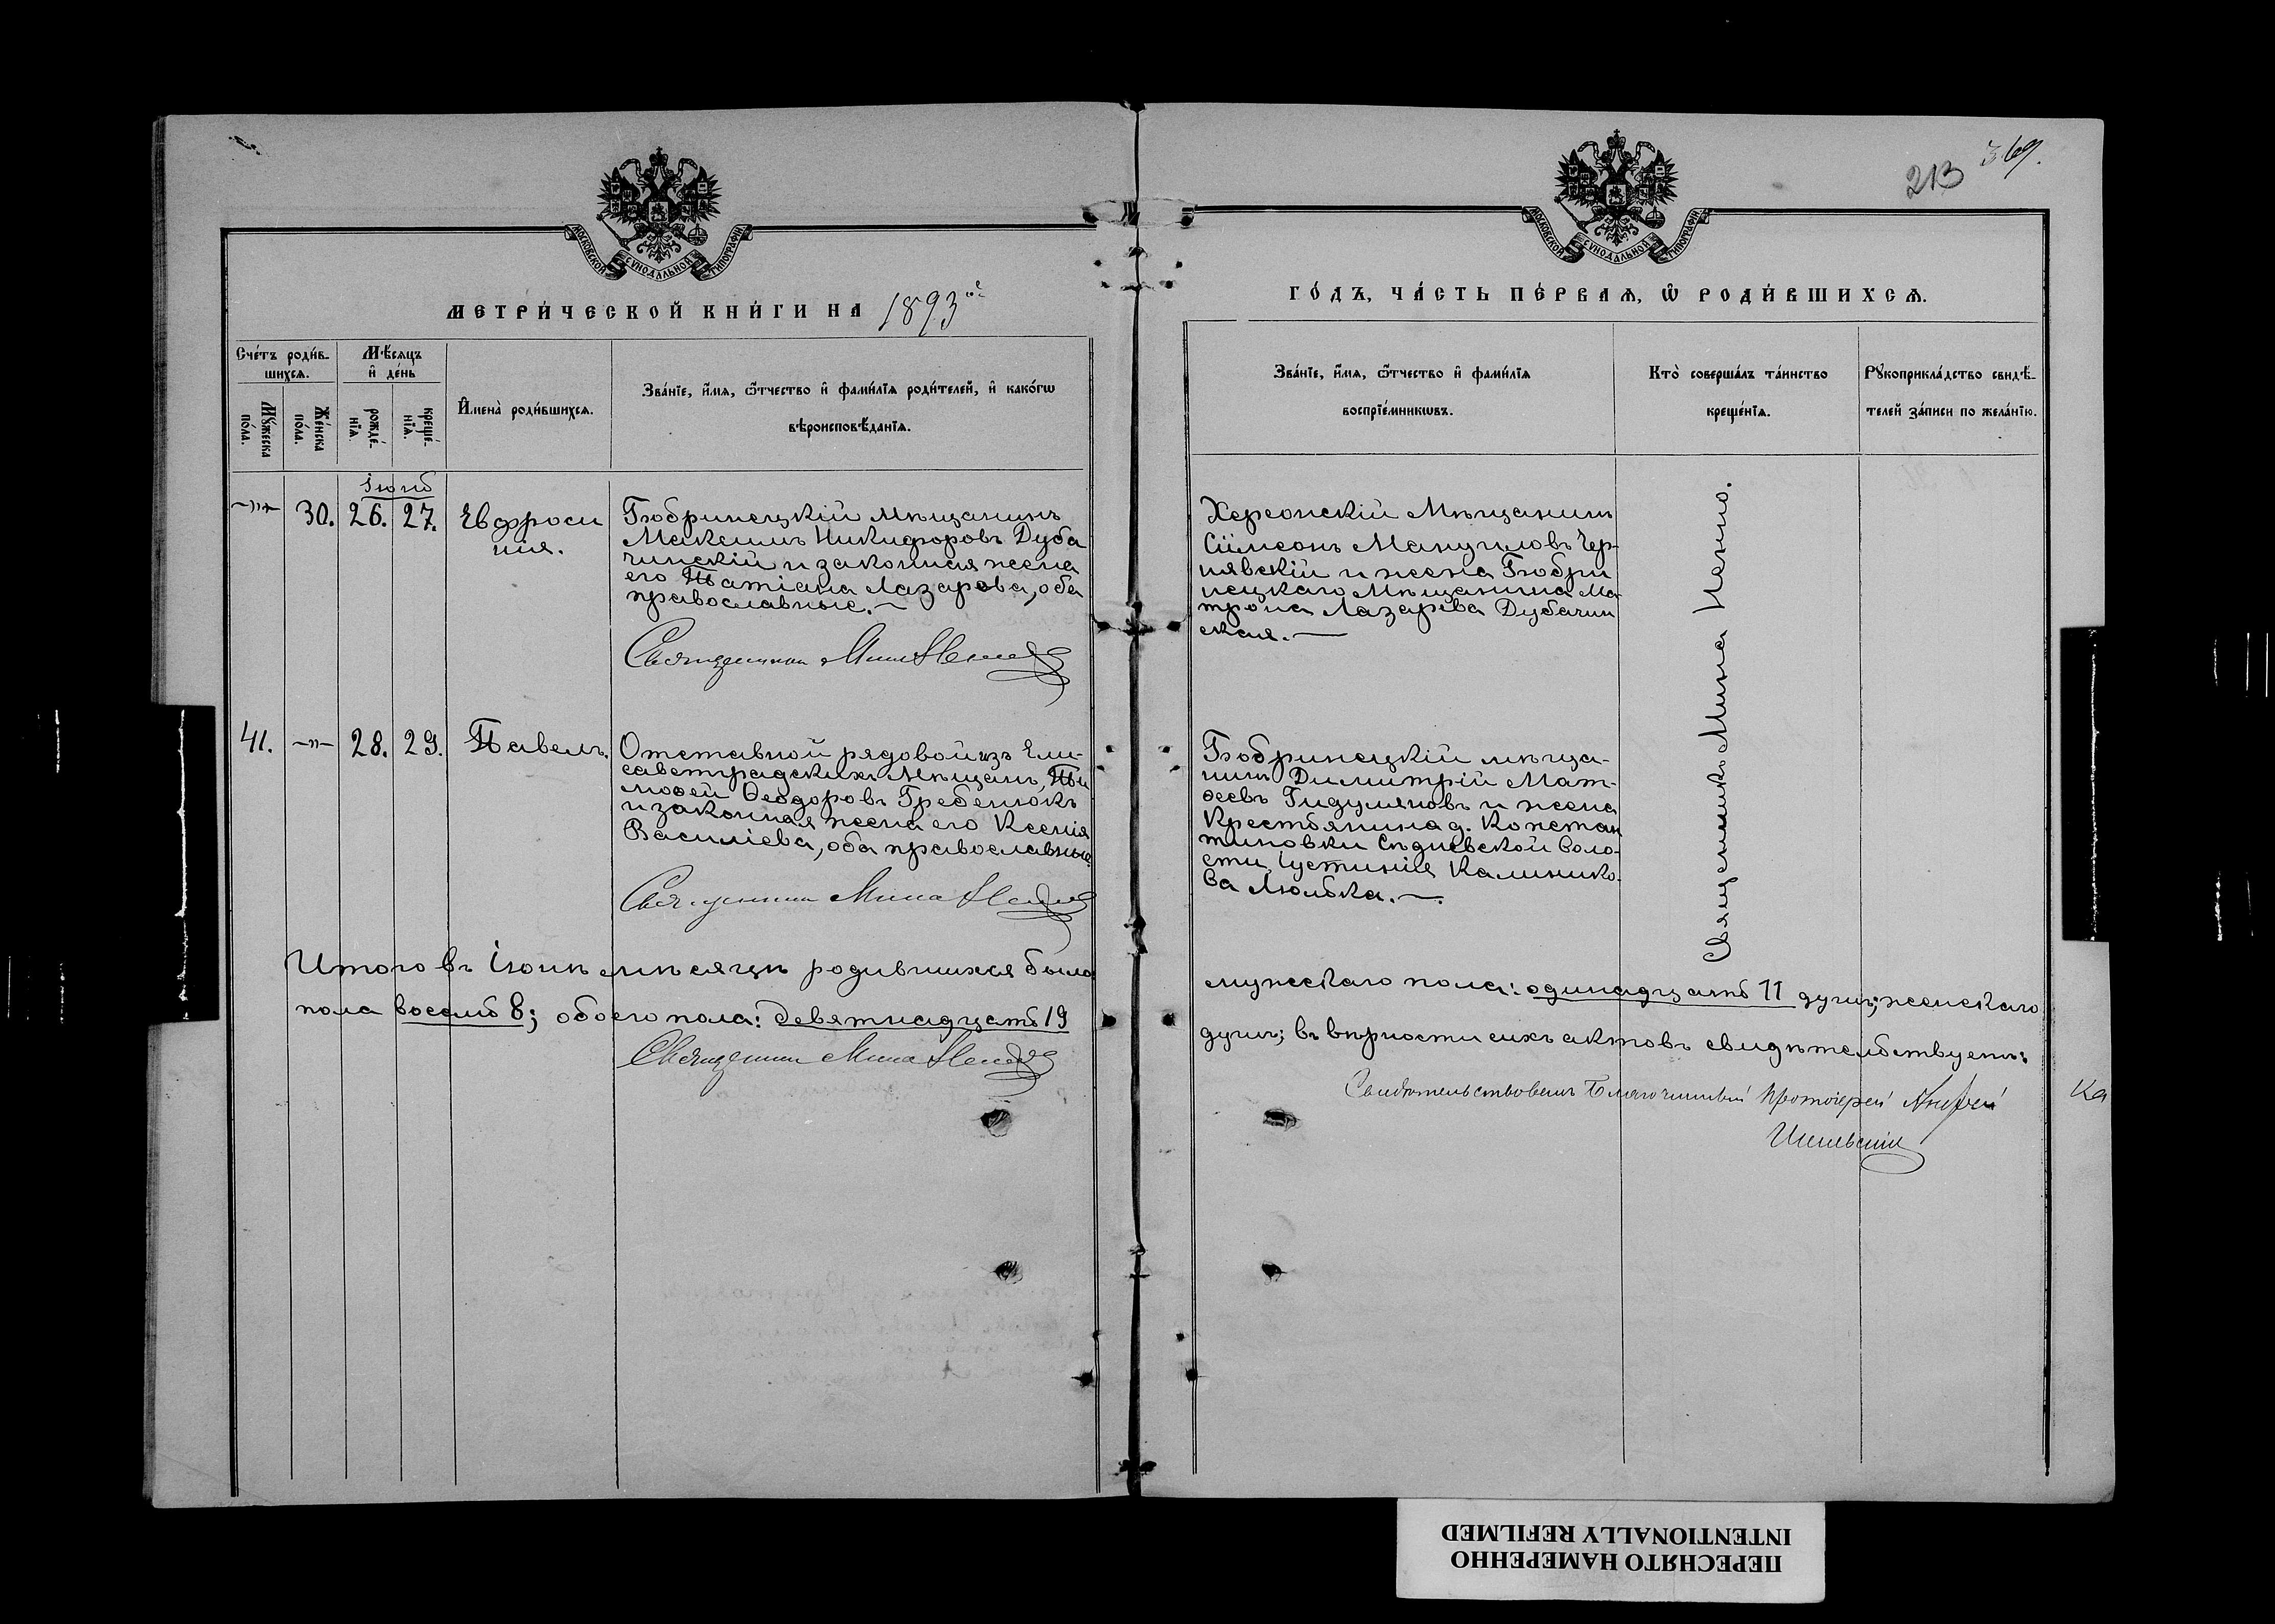 213
369.
МОСКОВСКОЙ СУНОДАЛЬНОЙ ТИПОГРАФІИ
МОСКОВСКОЙ СУНОДАЛЬНОЙ ТИПОГРАФІИ
МЕТРИ́ЧЕСКОЙ КНИ́ГИ НА 1893
ГО́ДЪ, ЧА́СТЬ ПЕ́РВАѦ, Ѡ҆ РОДИ́ВШИХСѦ.
Сче́тъ роди́в-
шихсѧ.
Мꙋ́жеска
по́ла.
Же́нска
по́ла.
Мѣ́сѧцъ
и҆ де́нь
рожде́-
нїѧ.
креще́-
нїѧ.
И҆мена̀ роди́вшихсѧ.
Зва́нїе, и҆́мѧ, ѻ҆́тчество и҆ фами́лїѧ роди́телей, и҆ како́гѡ
вѣроисповѣ́данїѧ.
Зва́нїе, и҆́мѧ, ѻ҆́тчество и҆ фами́лїѧ
воспрїе́мникѡвъ.
Кто̀ соверша́лъ та́инство
креще́нїѧ.
Рꙋкоприкла́дство свидѣ́-
телей за́писи по жела́нїю.
Іюнь
-"- 30. 26. 27. Евфроси
нія.
Бобринецкій Мѣщанинъ
Максимъ Никифоровъ Дуба
чинскій и законная жена
его Татіана Лазарева, оба
православные.—
Священникъ Мина
Херсонскій Мѣщанинъ
Симеонъ Мануиловъ Чер-
нявскій и жена Бобри
нецкаго Мѣщанина Ма
трона Лазарева Дубачин
ская.—
Священникъ Мина Ненно.
41. -"- 28. 29. Павелъ.
Отставной рядовой изъ Ели-
саветградскихъ Мѣщанъ, Ти
моѳей Ѳеодоровъ Гребенюкъ
и законная жена его Ксенія
Василіева, оба православные.
Священникъ Мина
Бобринецкій мѣща-
нинъ Димитрій Мат-
ѳеевъ Гидуляновъ и жена
Крестьянина д. Констан
тиновки Сѣдневской Воло-
сти, Іустинія Калинико-
ва Люлька.—.
Итого въ Іюнѣ мѣсяцѣ родившихся было
мужескаго пола: одинадцать 11 душъ; женскаго
пола восемь 8; обоего пола: девятнадцать 19
душъ; въ вѣрности сихъ актовъ свидѣтельствуемъ:
Священникъ Мина
Свидѣтельствовалъ Благочинный Протоіерей Андрей
Ка
ПЕРЕСНЯТО НАМЕРЕННО
INTENTIONALLY REFILMED